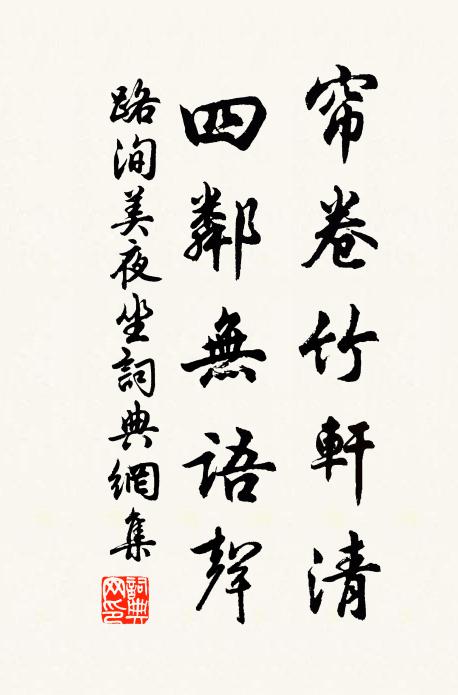 帘卷竹軒清
四鄰無語聲
路洵美夜坐詞典網集
詞典網印